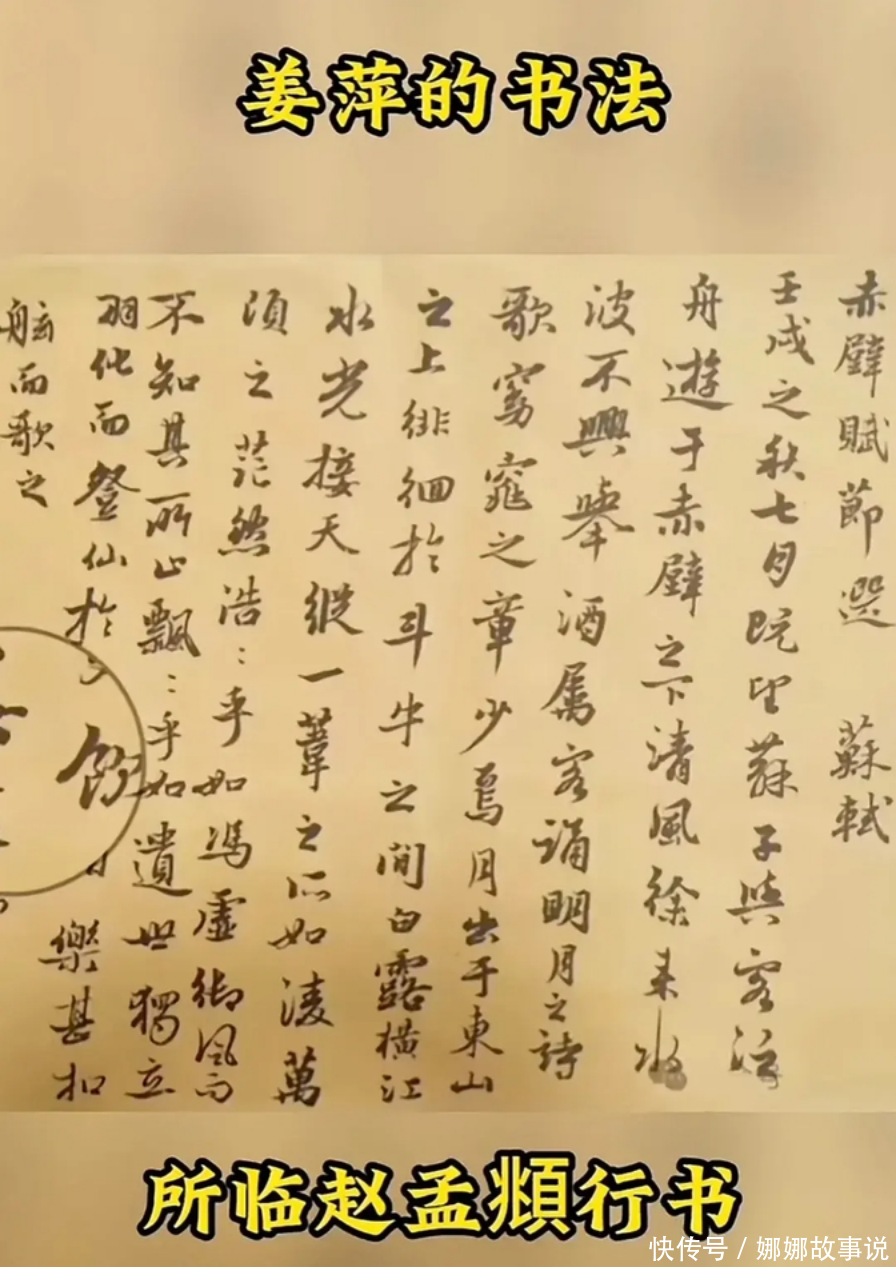 姜萍的书法
赤壁賦節選 蘇軾
壬戌之秋七月既望蘇子與客泛
舟遊于赤壁之下清風徐来水
波不興舉酒属客誦明月之詩
歌窈窕之章少焉月出于東山
之上徘徊於斗牛之間白露横江
水光接天縱一葦之所如淩萬
須之茫然浩:乎如馮虚御風而
不知其所止飄:乎如遺世獨立
羽化而登仙於 樂甚扣
舷而歌之
所临赵孟頫行书
快传号 / 娜娜故事说